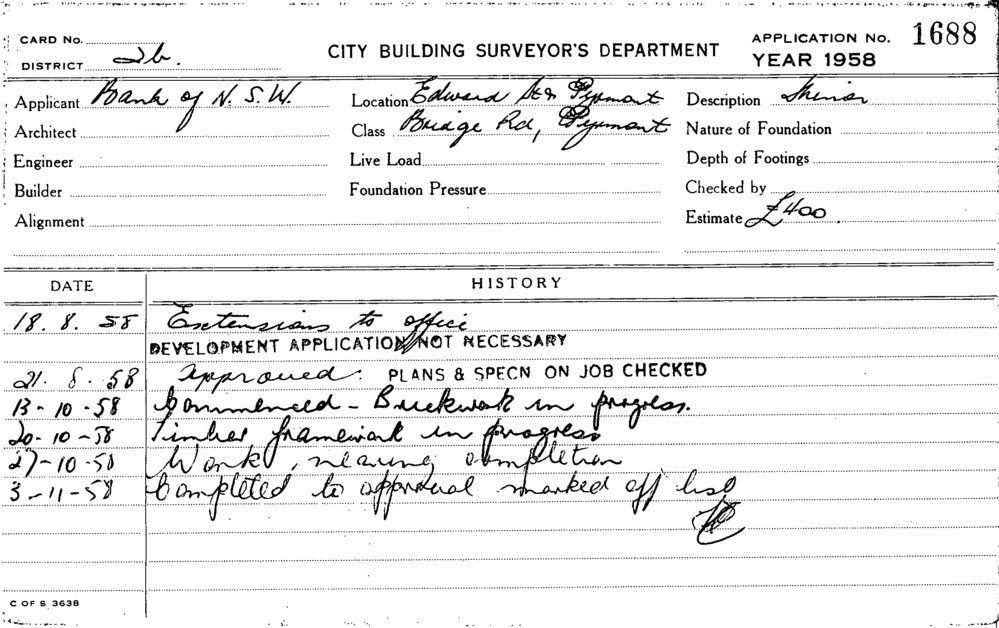 CARD No.
DISTRICT 2b.
CITY BUILDING SURVEYOR'S DEPARTMENT
APPLICATION No. 1688
YEAR 1958
Applicant Bank of N. S. W.
Location Edward St & Pyrmont
Description Minor
Architect
Class Bridge Rd, Pyrmont
Nature of Foundation
Engineer
Live Load
Depth of Footings
Builder
Foundation Pressure
Checked by
Alignment
Estimate £400
DATE
HISTORY
18. 8. 58 Extensions to office
DEVELOPMENT APPLICATION NOT NECESSARY
21. 8. 58 Approved. PLANS & SPECN ON JOB CHECKED
13-10-58 Commenced - Brickwork in progress.
20-10-58 Timber framework in progress
27-10-58 Work nearing completion
3-11-58 Completed to approval marked off list
C OF S 3638